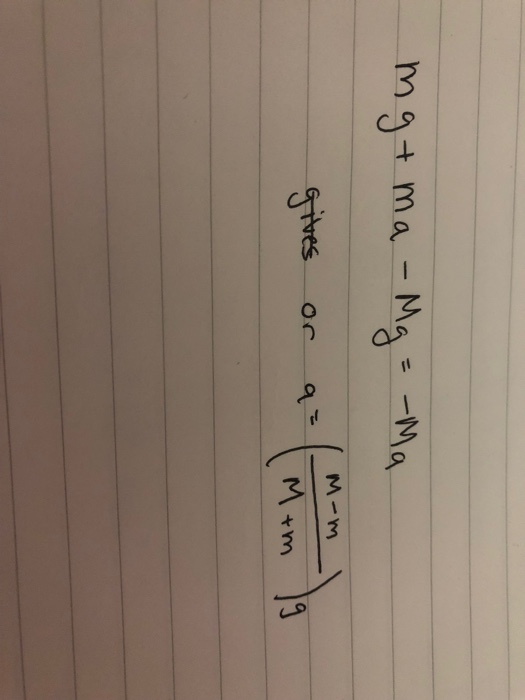 mg + ma - Mg = -Ma
gives or a = (M-m / M+m) g